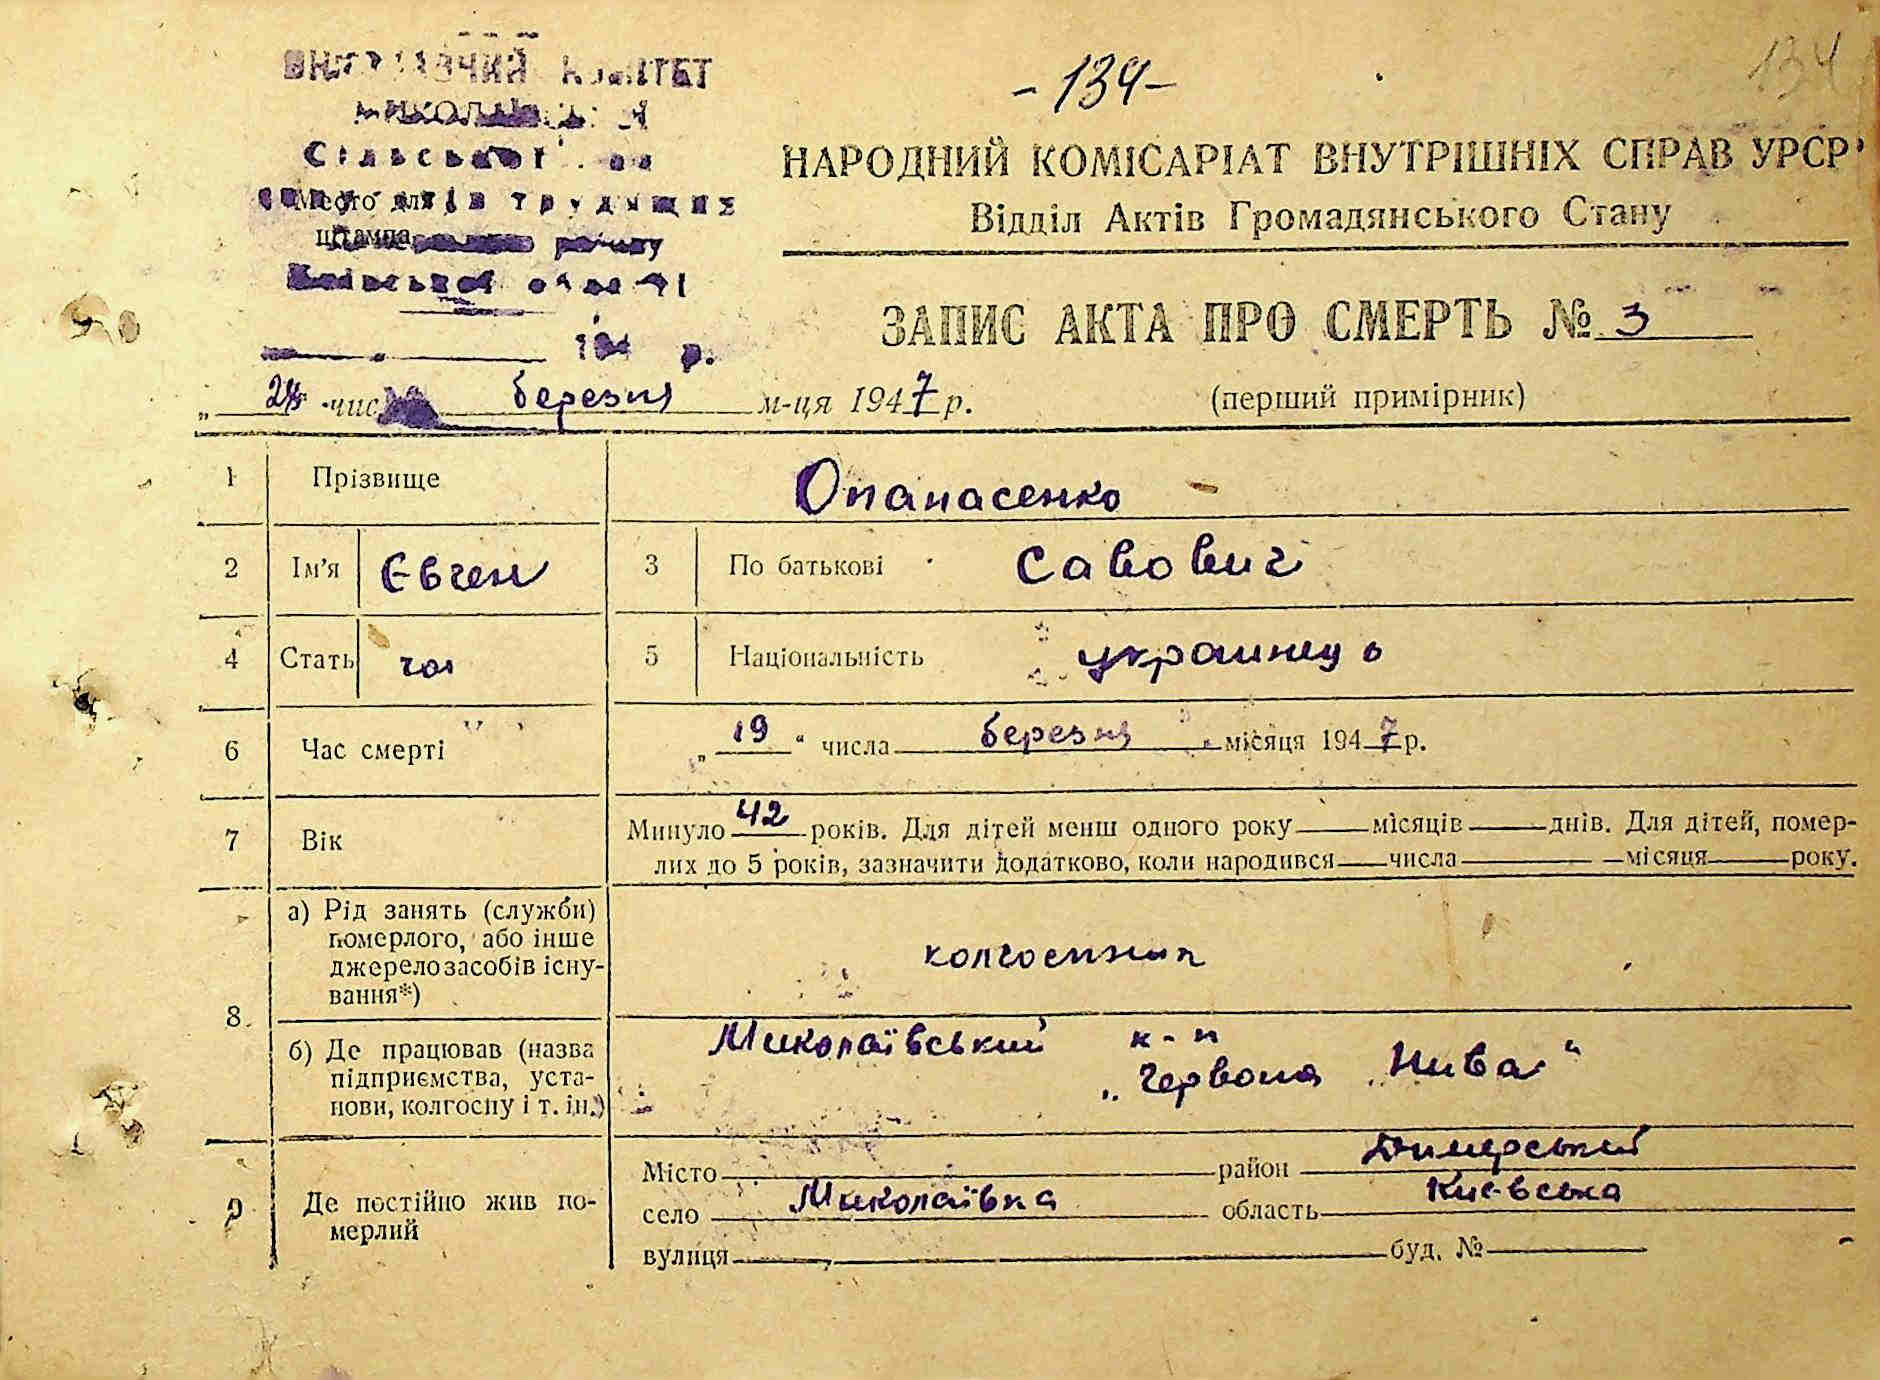 -134-
134
ВИКОНАВЧИЙ КОМІТЕТ
Сільської
депутатів трудящих
Место для
штампа
району
Київської області
194 р.
НАРОДНИЙ КОМІСАРІАТ ВНУТРІШНІХ СПРАВ УРСР
Відділ Актів Громадянського Стану
ЗАПИС АКТА ПРО СМЕРТЬ № 3
„ числ березня м-ця 1947 р.
(перший примірник)
1 Прізвище Опанасенко
2 Ім'я Євген 3 По батькові Савович
4 Стать чол 5 Національність українець
6 Час смерті „19“ числа березня місяця 1947 р.
7 Вік Минуло 42 років. Для дітей менш одного року місяців днів. Для дітей, помер-
лих до 5 років, зазначити додатково, коли народився числа місяця року.
8
а) Рід занять (служби)
померлого, або інше
джерело засобів існу-
вання*)
колгоспник
б) Де працював (назва
підприємства, уста-
нови, колгоспу і т. ін.)
Миколаївський к-п
„Червона Нива“
9
Де постійно жив по-
мерлий
Місто район Димерський
село Миколаївка область Києвська
вулиця буд. №